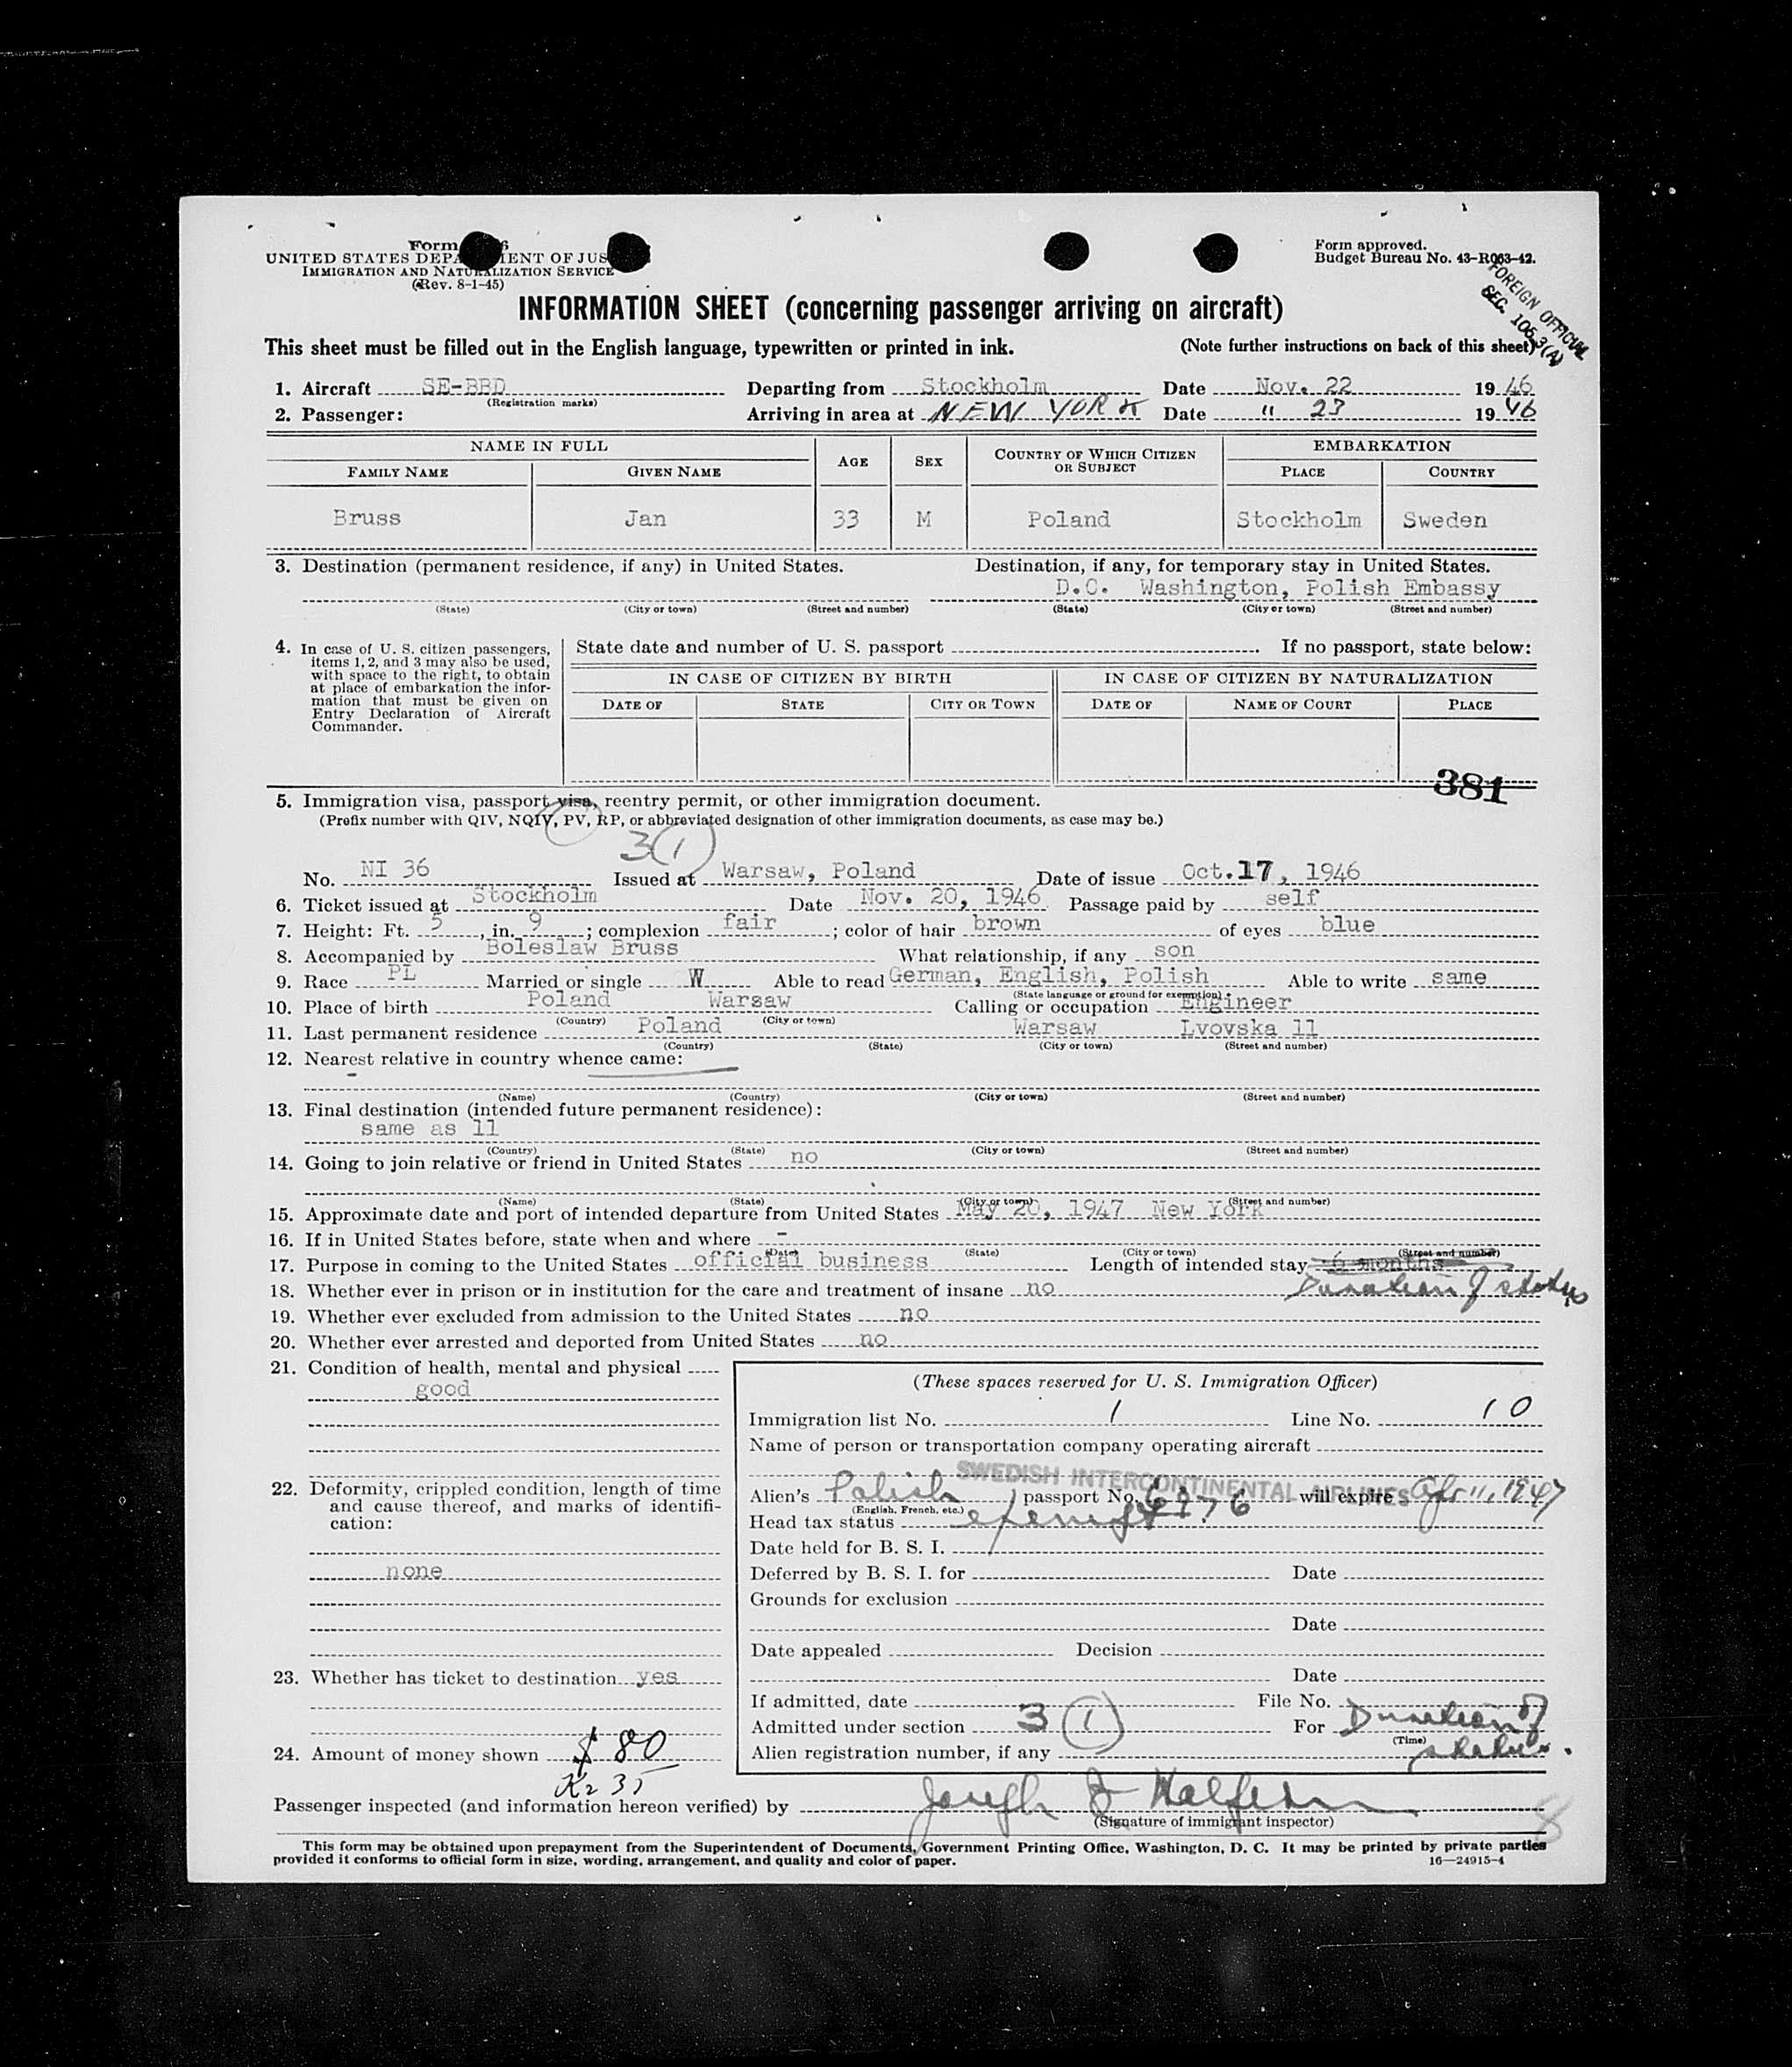 Form
UNITED STATES DEPA MENT OF JUS
IMMIGRATION AND NATURALIZATION SERVICE
(Rev. 8-1-45)
Form approved.
Budget Bureau No. 43-R063-42.
FOREIGN OFFICIAL
SEC. 105.3(A)
INFORMATION SHEET (concerning passenger arriving on aircraft)
This sheet must be filled out in the English language, typewritten or printed in ink. (Note further instructions on back of this sheet)
1. Aircraft SE-BBD Departing from Stockholm Date Nov. 22 1946
(Registration marks)
2. Passenger: Arriving in area at NEW YORK Date " 23 1946
NAME IN FULL AGE SEX COUNTRY OF WHICH CITIZEN OR SUBJECT EMBARKATION
FAMILY NAME GIVEN NAME PLACE COUNTRY
Bruss Jan 33 M Poland Stockholm Sweden
3. Destination (permanent residence, if any) in United States. Destination, if any, for temporary stay in United States.
D.C. Washington, Polish Embassy
(State) (City or town) (Street and number) (State) (City or town) (Street and number)
4. In case of U. S. citizen passengers, items 1, 2, and 3 may also be used, with space to the right, to obtain at place of embarkation the information that must be given on Entry Declaration of Aircraft Commander.
State date and number of U. S. passport If no passport, state below:
IN CASE OF CITIZEN BY BIRTH IN CASE OF CITIZEN BY NATURALIZATION
DATE OF STATE CITY OR TOWN DATE OF NAME OF COURT PLACE
381
5. Immigration visa, passport visa, reentry permit, or other immigration document.
(Prefix number with QIV, NQIV, PV, RP, or abbreviated designation of other immigration documents, as case may be.)
3(1)
No. NI 36 Issued at Warsaw, Poland Date of issue Oct.17, 1946
6. Ticket issued at Stockholm Date Nov. 20, 1946 Passage paid by self
7. Height: Ft. 5, in. 9; complexion fair; color of hair brown of eyes blue
8. Accompanied by Boleslaw Bruss What relationship, if any son
9. Race PL Married or single W Able to read German, English, Polish Able to write same
(State language or ground for exemption)
10. Place of birth Poland Warsaw Calling or occupation Engineer
(Country) (City or town)
11. Last permanent residence Poland Warsaw Lvovska 11
(Country) (State) (City or town) (Street and number)
12. Nearest relative in country whence came:
(Name) (Country) (City or town) (Street and number)
13. Final destination (intended future permanent residence):
same as 11
(Country) (State) (City or town) (Street and number)
14. Going to join relative or friend in United States no
(Name) (State) (City or town) (Street and number)
15. Approximate date and port of intended departure from United States May 20, 1947 New York
16. If in United States before, state when and where -
(Date) (State) (City or town) (Street and number)
17. Purpose in coming to the United States official business Length of intended stay 6 months
Duration of status
18. Whether ever in prison or in institution for the care and treatment of insane no
19. Whether ever excluded from admission to the United States no
20. Whether ever arrested and deported from United States no
21. Condition of health, mental and physical
good
22. Deformity, crippled condition, length of time and cause thereof, and marks of identification:
none
23. Whether has ticket to destination yes
24. Amount of money shown $ 80
Kr 35
(These spaces reserved for U. S. Immigration Officer)
Immigration list No. 1 Line No. 10
Name of person or transportation company operating aircraft
SWEDISH INTERCONTINENTAL AIRLINES
Alien's Polish passport No. will expire Apr 11, 1947
(English, French, etc.)
Head tax status exempt
Date held for B. S. I.
Deferred by B. S. I. for Date
Grounds for exclusion
Date
Date appealed Decision
Date
If admitted, date File No.
Admitted under section 3 (1) For Duration of status.
(Time)
Alien registration number, if any
Passenger inspected (and information hereon verified) by Joseph
(Signature of immigrant inspector)
8
This form may be obtained upon prepayment from the Superintendent of Documents, Government Printing Office, Washington, D. C. It may be printed by private parties
provided it conforms to official form in size, wording, arrangement, and quality and color of paper. 16—24915-4